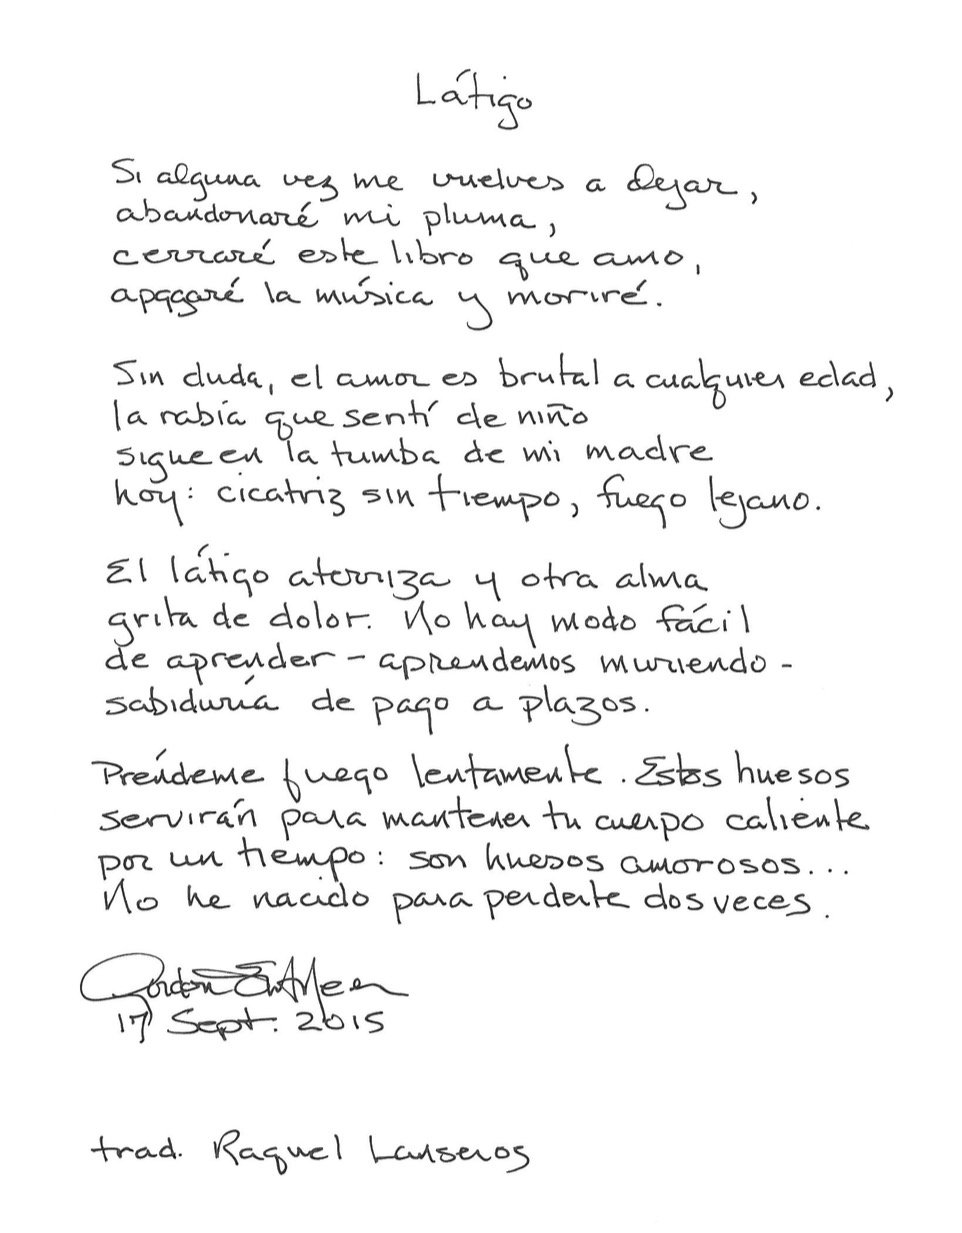 Látigo
Si alguna vez me vuelves a dejar,
abandonaré mi pluma,
cerraré este libro que amo,
apagaré la música y moriré.
Sin duda, el amor es brutal a cualquier edad,
la rabia que sentí de niño
sigue en la tumba de mi madre
hoy: cicatriz sin tiempo, fuego lejano.
El látigo aterriza y otra alma
grita de dolor. No hay modo fácil
de aprender - aprendemos muriendo -
sabiduría de pago a plazos.
Préndeme fuego lentamente. Estos huesos
servirán para mantener tu cuerpo caliente
por un tiempo: son huesos amorosos...
No he nacido para perderte dos veces.
Gordon
17 Sept. 2015
trad. Raquel Lanseros